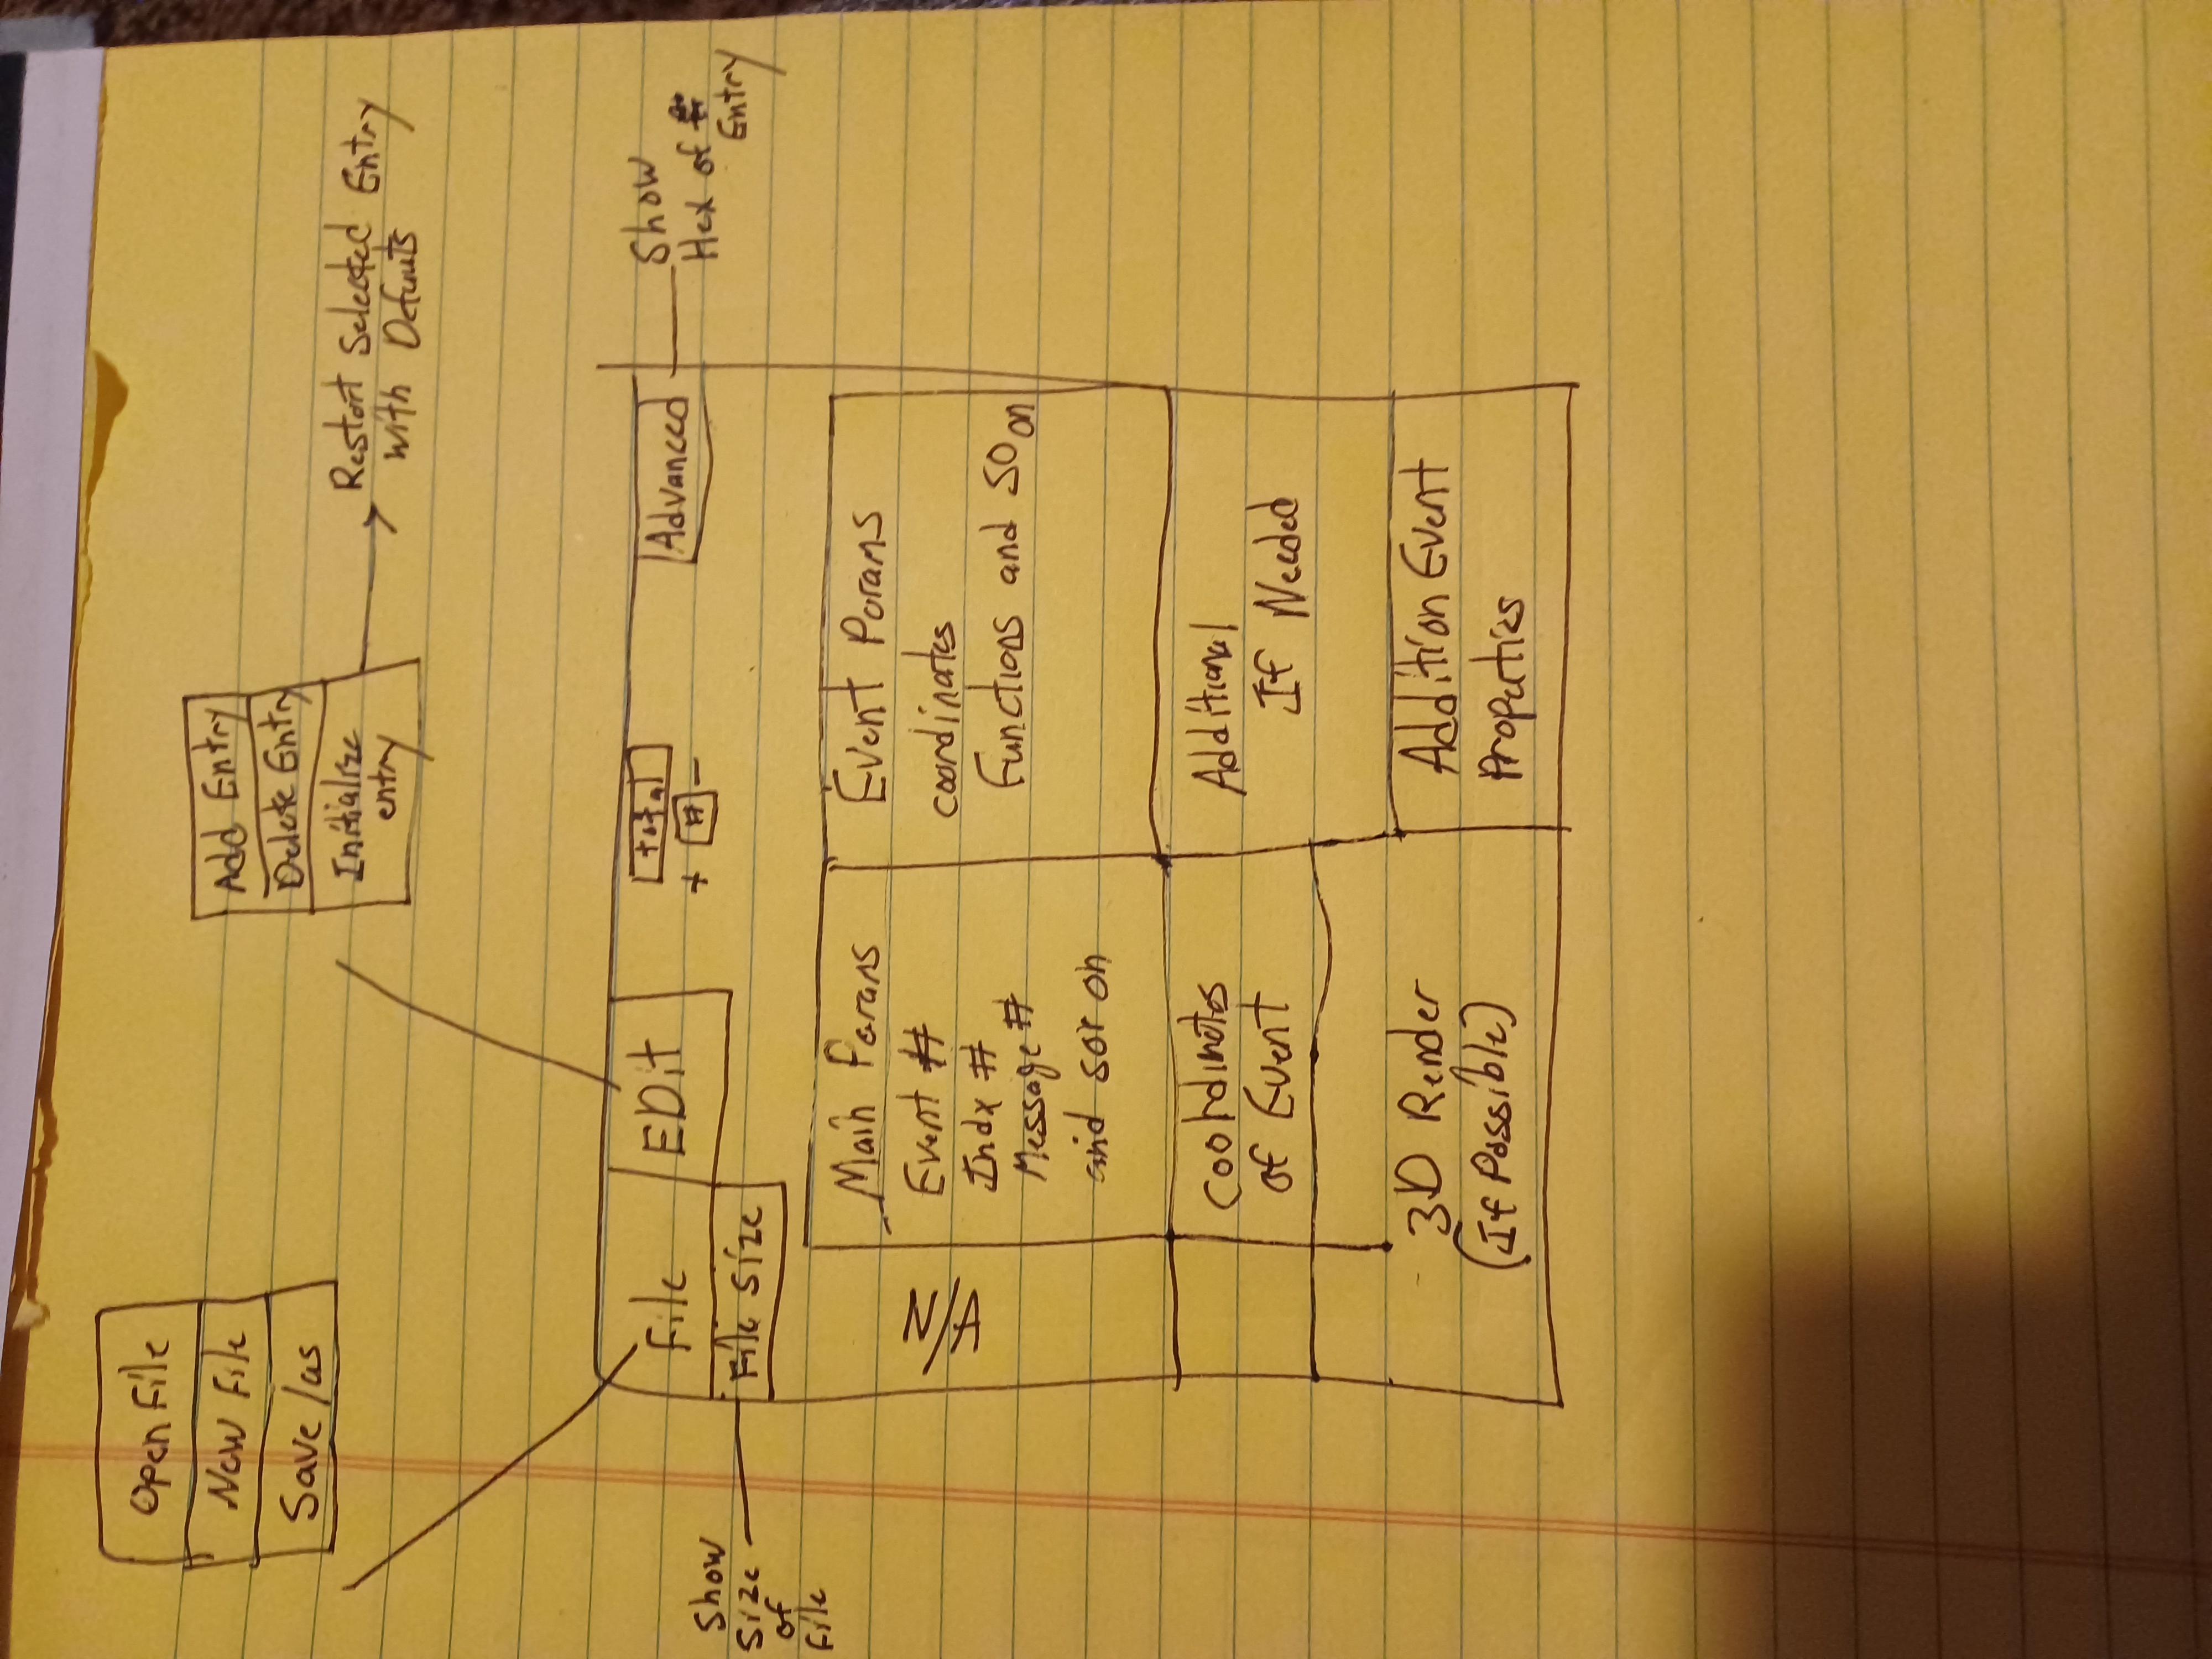 Open File
New File
Save/as
Add Entry
Delete Entry
Initialize
entry
Restart Selected Entry
with Defuuts
File
EDit
total
+ # -
Advanced
Show
Hex of
Entry
Show
Size
of
File
File Size
N/A
Main Params
Event #
Indx #
Message #
and sor on
Event Params
coordinates
Functions and SO on
Coordinates
of Event
Additional
If Needed
3D Render
(If Possible)
Addition Event
Properties